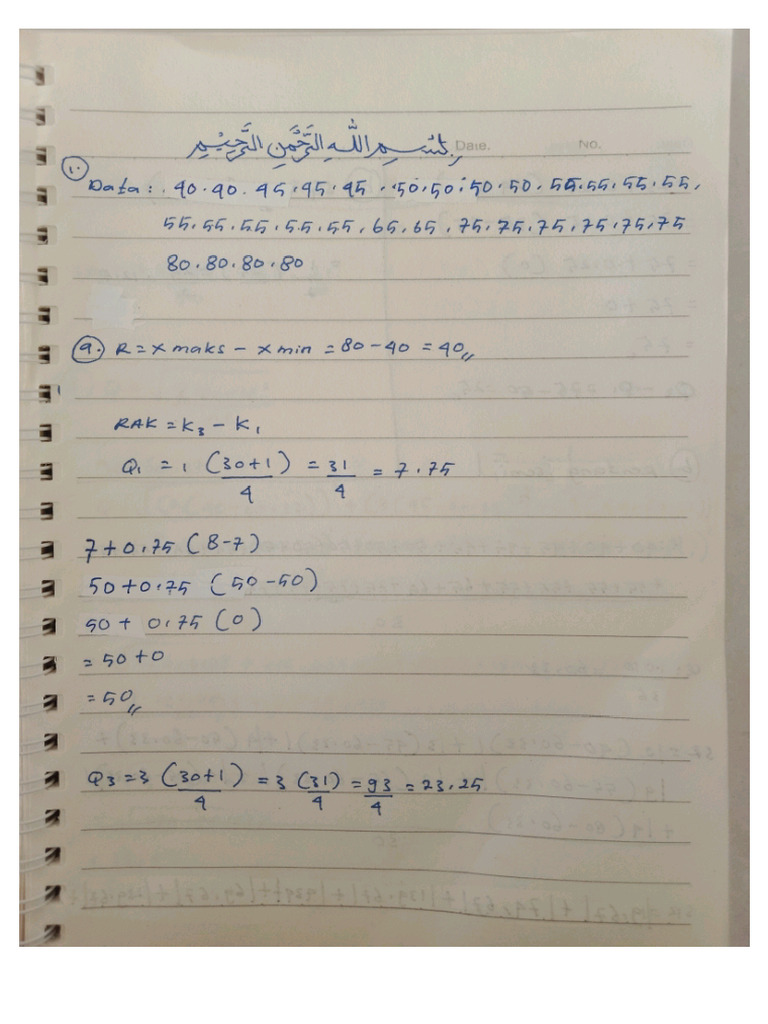 بسم الله الرحمن الرحيم Date. No.
1.
Data : . 40.40. 45.45.45 . 50.50.50.50. 55.55.55.55.
55.55.55.55.55.65.65.75.75.75.75.75.75
80.80.80.80
a. R = x maks - x min = 80 - 40 = 40,,
RAK = K3 - K1
Q1 = 1 (30+1)/4 = 31/4 = 7.75
7 + 0.75 (8-7)
50 + 0.75 (50-50)
50 + 0.75 (0)
= 50 + 0
= 50,,
Q3 = 3 (30+1)/4 = 3 (31)/4 = 93/4 = 23.25